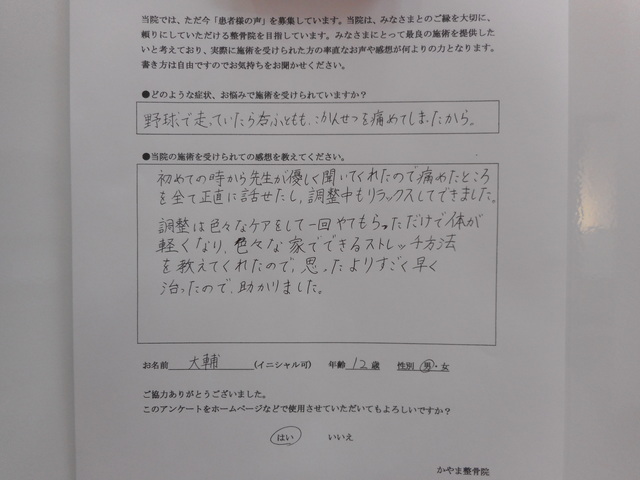 当院では、ただ今「患者様の声」を募集しています。当院は、みなさまとのご縁を大切に、
頼りにしていただける整骨院を目指しています。みなさまにとって最良の施術を提供した
いと考えており、実際に施術を受けられた方の率直なお声や感想が何よりの力となります。
書き方は自由ですのでお気持ちをお聞かせください。
●どのような症状、お悩みで施術を受けられていますか？
野球で走っていたら右ふともも、こかんせつを痛めてしまったから。
●当院の施術を受けられての感想を教えてください。
初めての時から先生が優しく聞いてくれたので痛めたところ
を全て正直に話せたし、調整中もリラックスしてできました。
調整は色々なケアをして一回やてもらっただけで体が
軽くなり、色々な家でできるストレッチ方法
を教えてくれたので、思ったよりすごく早く
治ったので、助かりました。
お名前 大輔 （イニシャル可） 年齢 12歳 性別 男・女
ご協力ありがとうございました。
このアンケートをホームページなどで使用させていただいてもよろしいですか？
はい いいえ
かやま整骨院